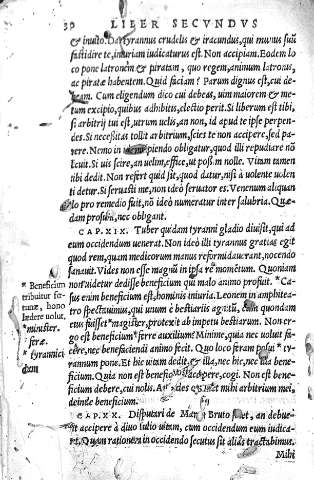 30 LIBER SECVNDVS
& inuito. Dat tyrannus crudelis & iracundus, qui munus suū
fastidire te, iniuriam iudicaturus est. Non accipiam. Eodem lo
co pone latronem & piratam, quo regem, animum latronis,
ac piratæ habentem. Quid faciam? Parum dignus est, cui de-
beam. Cum eligendum dico cui debeas, uim maiorem & me-
tum excipio, quibus adhibitis, electio perit. Si liberum est tibi,
si arbitrij tui est, utrum uelis, an non, id apud te ipse perpen-
des. Si necessitas tollit arbitrium, scies te non accipere, sed pa-
rere. Nemo in accipiendo obligatur, quod illi repudiare nō
licuit. Si uis scire, an uelim, effice, ut possim nolle. Vitam tamen
tibi dedit. Non refert quid sit, quod datur, nisi à uolente uolen
ti detur. Si seruasti me, non ideò seruator es. Venenum aliquan
do pro remedio fuit, nō ideò numeratur inter salubria. Quæ-
dam prosunt, nec obligant.
CAP. XIX. Tuber quidam tyranni gladio diuisit, qui ad
eum occidendum uenerat. Non ideò illi tyrannus gratias egit
quod rem, quam medicorum manus reformidauerant, nocendo
sanauit. Vides non esse magnū in ipsa rē momētum. Quoniam
non uidetur dedisse beneficium qui malo animo profuit. *Ca-
sus enim beneficium est, hominis iniuria. Leonem in amphitea-
tro spectauimus, qui unum è bestiarijs agnitū, cum quondam
eius fuisset *magister, protexit ab impetu bestiarum. Non er-
go est beneficium *ferræ auxilium? Minime, quia nec uoluit fa-
cere, nec beneficiendi animo fecit. Quo loco feram posui *ty-
rannum pone. Et hic uitam dedit, & illa, nec hic, nec illa bene-
ficium. Quia non est beneficium accipere, cogi. Non est bene-
ficium debere, cui nolis. Ante des oportet mihi arbitrium mei,
deinde beneficium.
CAP. XX. Disputari de Marco Bruto solet, an debue-
rit accipere à diuo iulio uitam, cum occidendum eum iudica-
ret. Quam rationem in occidendo secutus sit aliàs tractabimus.
Mihi
* Beneficium
tribuitur for
tunæ, homo
lædere uoluit,
*minister.
feræ.
*tyrannici
dam